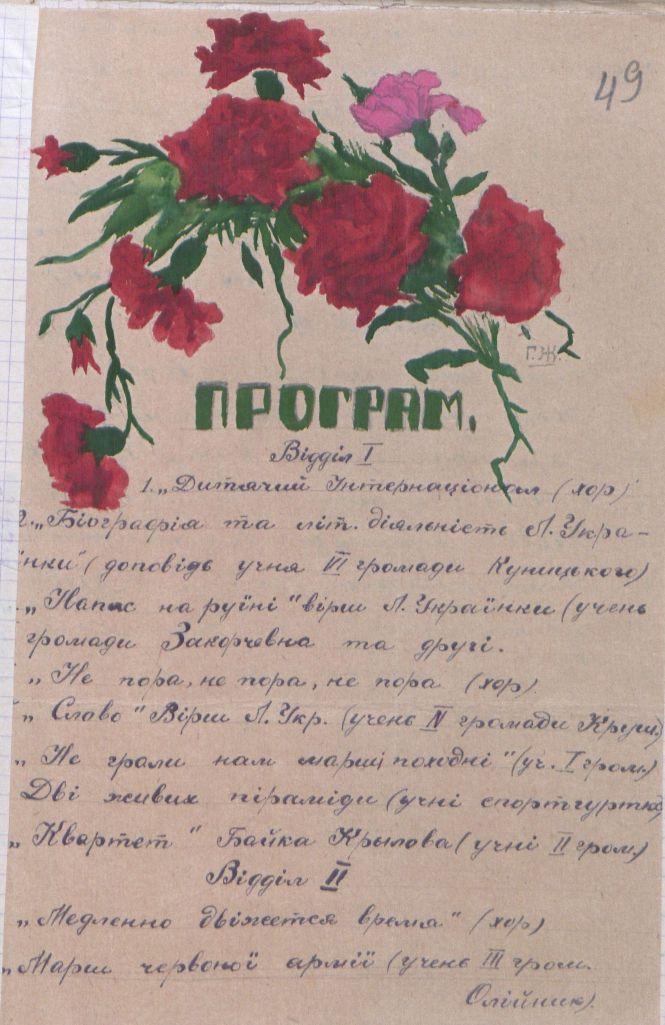 49
Г.Ж.
ПРОГРАМ.
Відділ I
1. „Дитячий Інтернаціонал (хор)
2. „Біографія та літ. діяльність Л. Укра-
їнки" (доповідь учня VI громади Куницького)
„Напис на руїні" вірш Л. Українки (учень
громади Закорчевна та другі.
„Не пора, не пора, не пора (хор)
„Слово" Вірш Л. Укр. (учень IV громади
„Не грали нам марші походні" (уч. I гром.)
Дві живих піраміди (учні спортгуртка)
„Квартет" Байка Крылова (учні II гром.)
Відділ II
„Медленно движется время" (хор)
„Марш червоної армії (учень III гром.
Олійник).